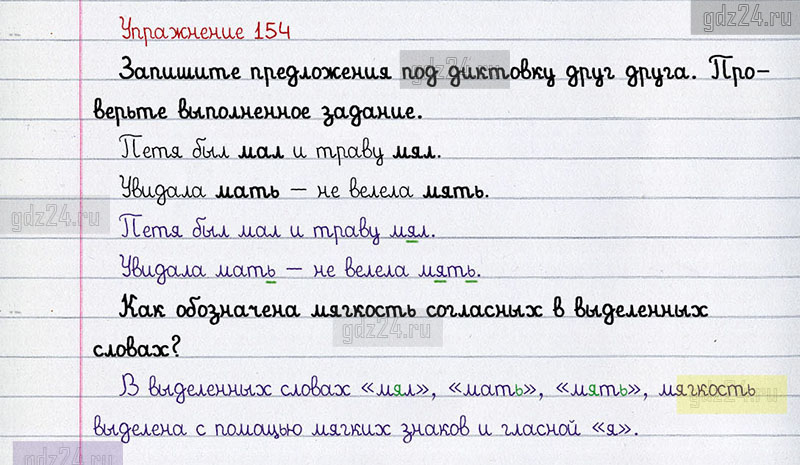 gdz24.ru
Упражнение 154
Запишите предложения под диктовку друг друга. Про-
gdz24.ru
верьте выполненное задание.
Петя был мал и траву мял.
Увидала мать – не велела мять.
gdz24.ru
Петя был мал и траву мял.
Увидала мать – не велела мять.
Как обозначена мягкость согласных в выделенных
gdz24.ru
словах?
В выделенных словах «мял», «мать», «мять», мягкость
gdz24.ru
выделена с помацью мягких знаков и гласной «я».
gdz24.ru